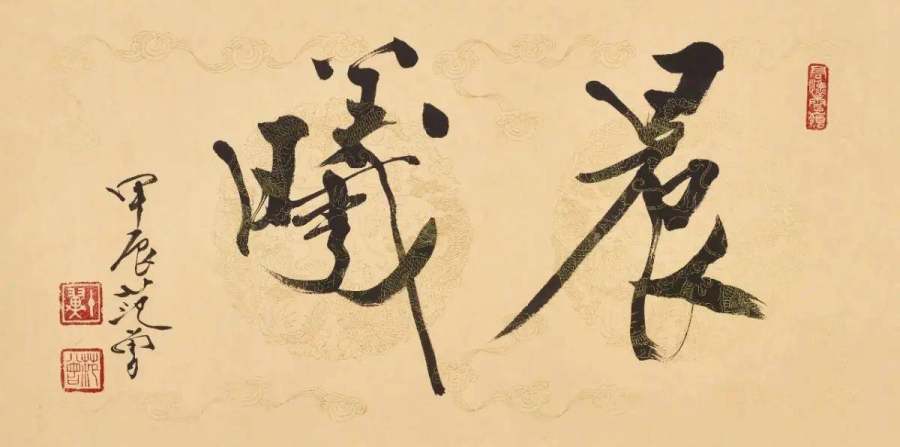 晨曦
甲辰范曾